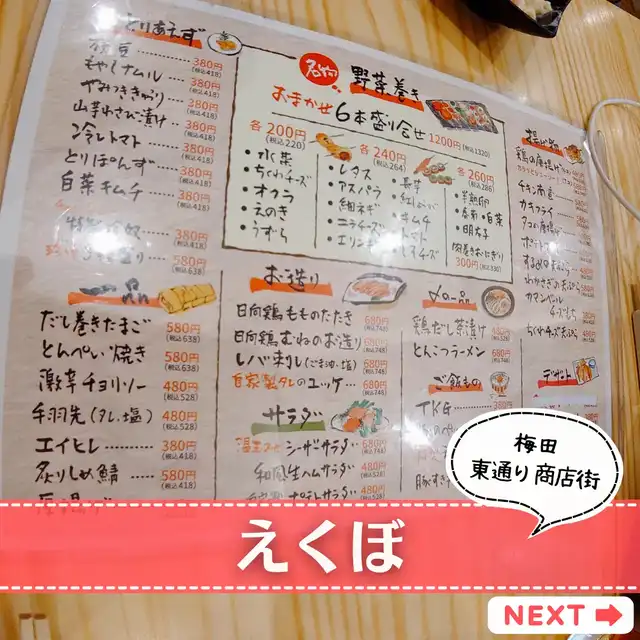 とりあえず
枝豆 380円 (税込418)
もやしナムル 380円 (税込418)
やみつききゅうり 380円 (税込418)
山芋わさび漬け 380円 (税込418)
冷しトマト 380円 (税込418)
とりぽんず 380円 (税込418)
白菜キムチ 380円 (税込418)
380円 (税込418)
580円 (税込638)
名物
野菜巻き
おまかせ6本盛り合せ 1200円 (税込1320)
各200円 (税込220)
・水菜
・ちくわチーズ
・オクラ
・えのき
・うずら
各240円 (税込264)
・レタス
・アスパラ
・細ネギ
・ニラチーズ
・エリンギ
・長芋
・紅しょうが
・キムチ
・トマト
各260円 (税込286)
・半熟卵
・明太子
・肉巻きおにぎり
300円 (税込330)
揚げ物
チキン南蛮
カキフライ
タコの唐揚げ
カマンベール
チーズフライ
ちくわチーズ天ぷら
一品
だし巻きたまご 580円 (税込638)
とんぺい焼き 580円 (税込638)
激辛チョリソー 480円 (税込528)
手羽先(タレ・塩) 480円 (税込528)
エイヒレ 380円 (税込418)
炙りしめ鯖 580円 (税込638)
お造り
日向鶏もものたたき 680円 (税込748)
日向鶏むねのお造り 680円 (税込748)
レバ刺し(ごま油・塩) 680円 (税込748)
自家製タレのユッケ 680円 (税込748)
サラダ
シーザーサラダ 680円 (税込748)
和風生ハムサラダ 480円 (税込528)
ポテトサラダ 480円
〆の一品
鶏だし茶漬け 480円
とんこつラーメン 680円
ご飯もの
TKG
デザート
梅田
東通り商店街
えくぼ
NEXT